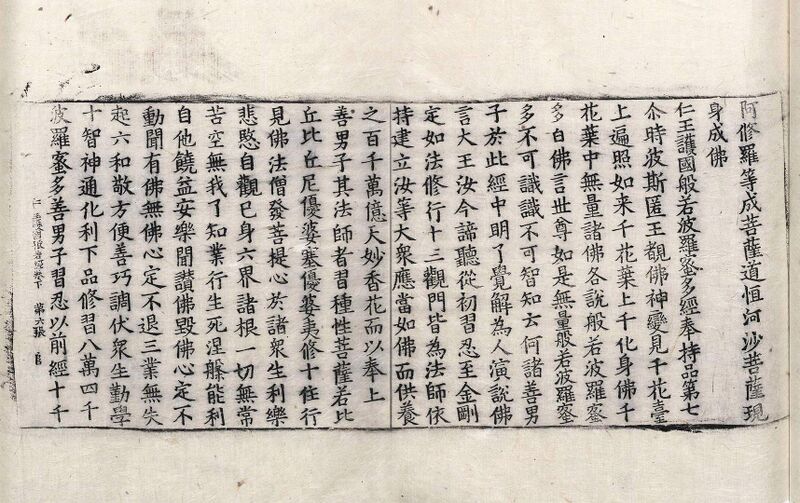 阿修羅等成菩薩道恒河沙菩薩現
身成佛
仁王護國般若波羅蜜多經奉持品第七
尒時波斯匿王覩佛神變見千花臺
上遍照如来千花葉上千化身佛千
花葉中無量諸佛各說般若波羅蜜
多白佛言世尊如是無量般若波羅蜜
多不可識識不可智知云何諸善男
子於此經中明了覺解為人演說佛
言大王汝今諦聽從初習忍至金剛
定如法修行十三觀門皆為法師依
持建立汝等大衆應當如佛而供養
之百千萬億天妙香花而以奉上
善男子其法師者習種性菩薩若比
丘比丘尼優婆塞優婆夷修十住行
見佛法僧發菩提心於諸衆生利樂
悲愍自觀已身六界諸根一切無常
苦空無我了知業行生死涅槃能利
自他饒益安樂聞讚佛毀佛心定不
動聞有佛無佛心定不退三業無失
起六和敬方便善巧調伏衆生勤學
十智神通化利下品修習八萬四千
波羅蜜多善男子習忍以前經十千
仁王護國般若經卷下 第六張